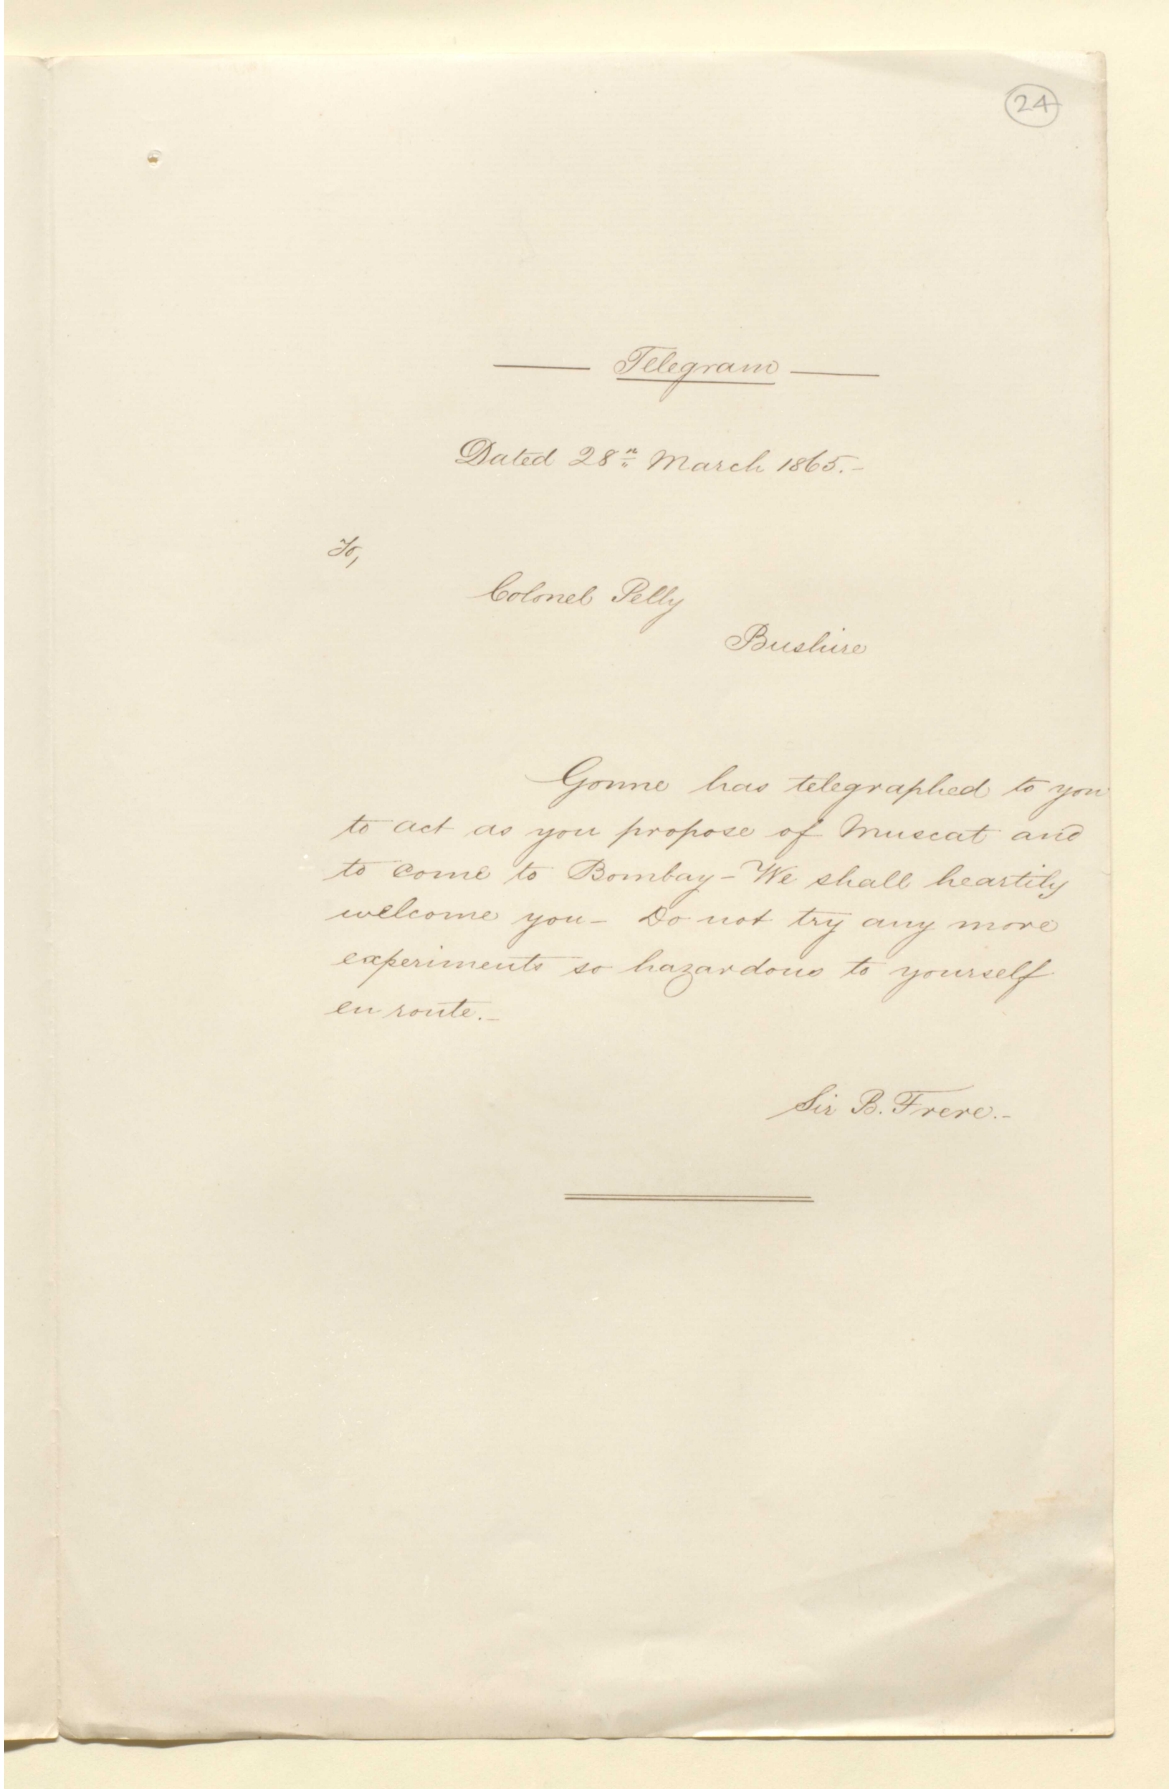 24
Telegram
Dated 28th March 1865.-
To,
Colonel Pelly
Bushire
Gonne has telegraphed to you
to act as you propose of Muscat and
to come to Bombay - We shall heartily
welcome you - Do not try any more
experiments so hazardous to yourself
en route.-
Sir B. Frere.-